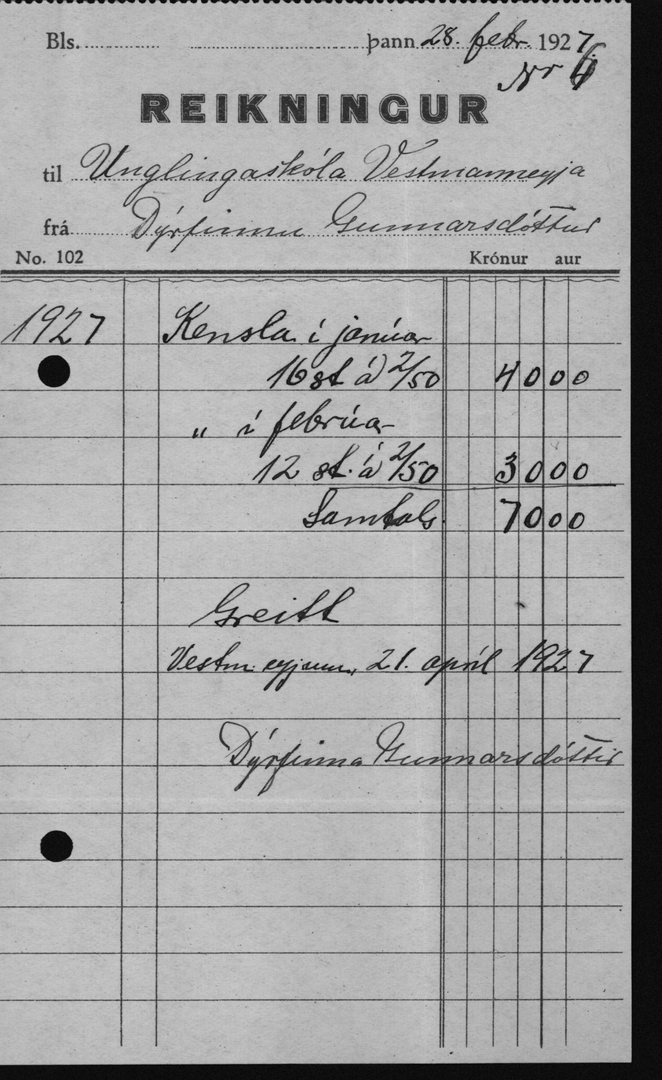 Bls. þann 28. febr. 1927.
Nr 6
REIKNINGUR
til Unglingaskóla Vestmannneyja
frá Dýrfinnu Gunnarsdóttur
No. 102 Krónur aur
1927 Kensla í janúar
16 st á 2/50 40 00
" í febrúar
12 st. á 2/50 30 00
Samtals 70 00
Greitt
Vestm. eyjum, 21. apríl 1927
Dýrfinna Gunnarsdóttir